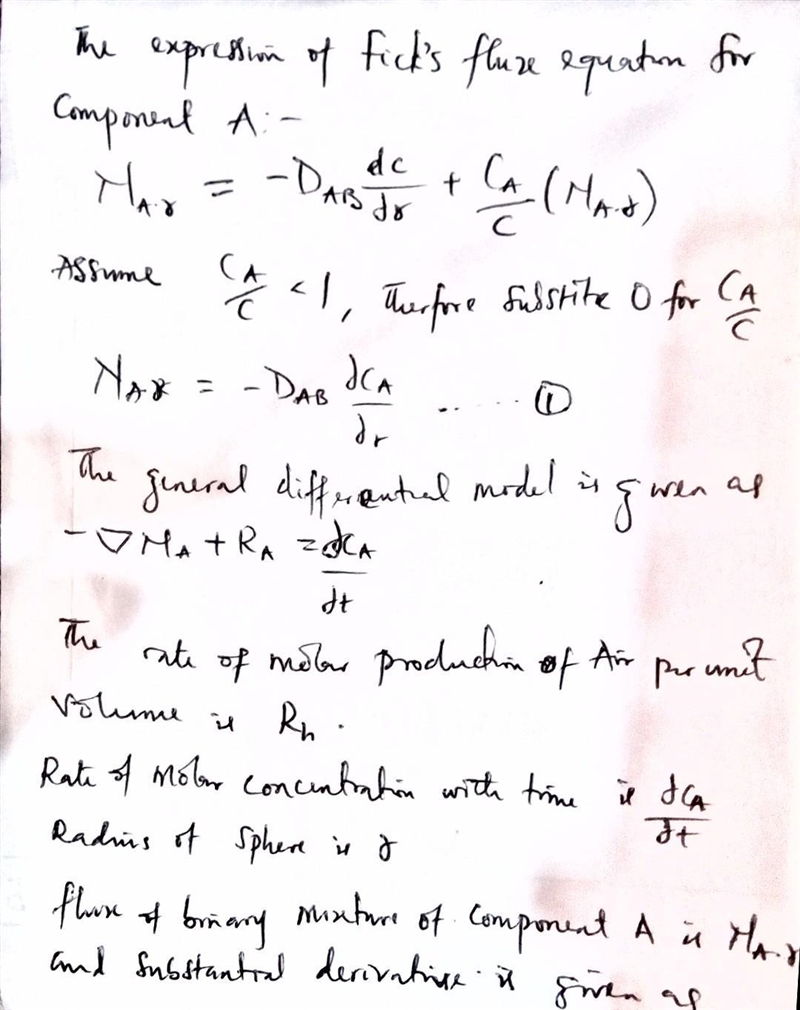 The expression of Fick's fluxe equation for
Component A:-
N_A.r = -D_AB dc/dr + C_A/C (N_A.r)
Assume C_A/C < 1, therfore Substite 0 for C_A/C
N_Ar = -D_AB dC_A/dr ........ ①
The general differential model is given as
-∇N_A + R_A = dC_A/dt
The rate of molar production of Air per unit
Volume is R_h.
Rate of Molar concentration with time is dC_A/dt
Radius of Sphere is r
flux of binary Mixture of Component A is N_A.r
and Substantial derivative is given as